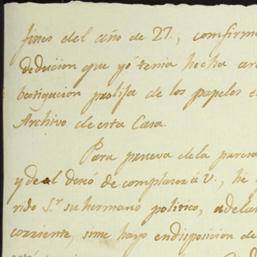 fines del año de 27., confirm
deducion que yó tenia hecha an
bestigacion prolija de los papeles e
Archivo de esta Casa.
Para prueva de la pure
y de al deseó de complacer á V., he
rido S.r su hermano politico, adela
corriente, sime hayo en disposicion de